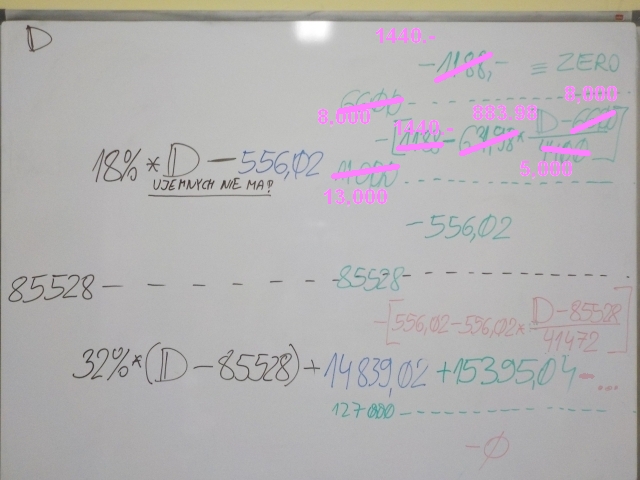 D
1440.-
-1188,- ≡ ZERO
6600
8,000
8,000
1440.-
883.98
-[1188-631,98*(D-6600)/4400]
5,000
18% * D - 556,02
UJEMNYCH NIE MA?
11000
13,000
-556,02
85528
85528
-[556,02-556,02*(D-85528)/41472]
32%*(D-85528)+14839,02+15395,04-...
127000
-Ø